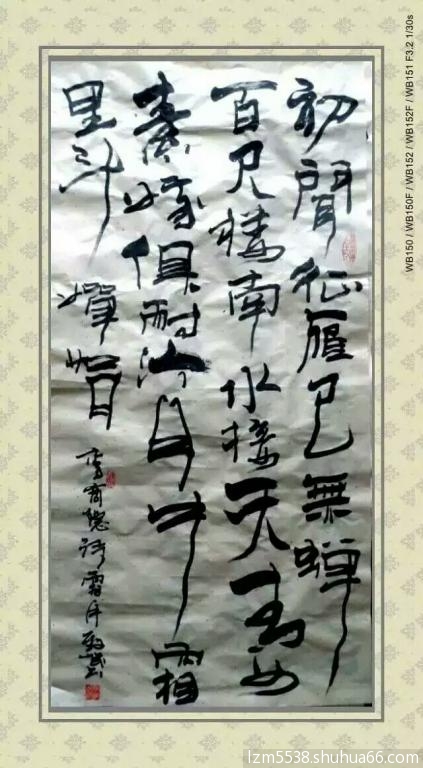 初聞征雁已無蟬
百尺樓南水接天青女
素娥俱耐冷月中霜
里斗嬋娟
李商隱詩霜月
WB150 / WB150F / WB152 / WB152F / WB151 F3.2 1/30s
lzm5538.shuhua66.com